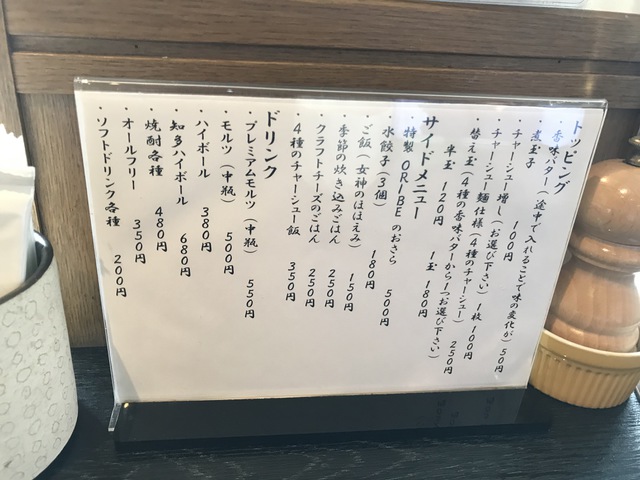 トッピング
・香味バター(途中で入れることで味の変化が) 50円
・煮玉子 100円
・チャーシュー増し(お選び下さい) 1枚 100円
・チャーシュー麺仕様(4種のチャーシュー) 250円
・替え玉(4種の香味バターから1つお選び下さい)
半玉 120円 1玉 180円
サイドメニュー
・特製ORIBEのおさら 500円
・水餃子(3個) 180円
・ご飯(女神のほほえみ) 150円
・季節の炊き込みごはん 250円
・クラフトチーズのごはん 250円
・4種のチャーシュー飯 350円
ドリンク
・プレミアムモルツ(中瓶) 550円
・モルツ(中瓶) 500円
・ハイボール 380円
・知多ハイボール 680円
・焼酎各種 480円
・オールフリー 350円
・ソフトドリンク各種 200円